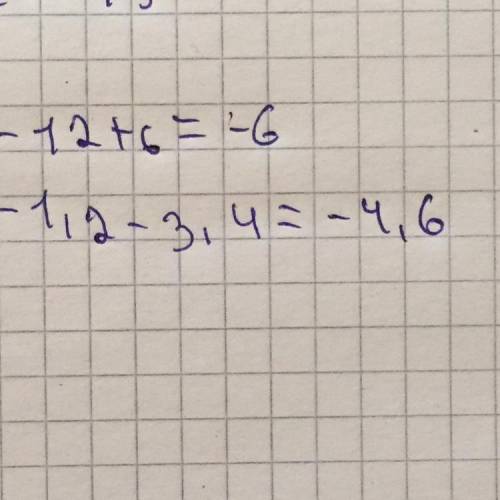 -12+6=-6
-1,2-3,4=-4,6